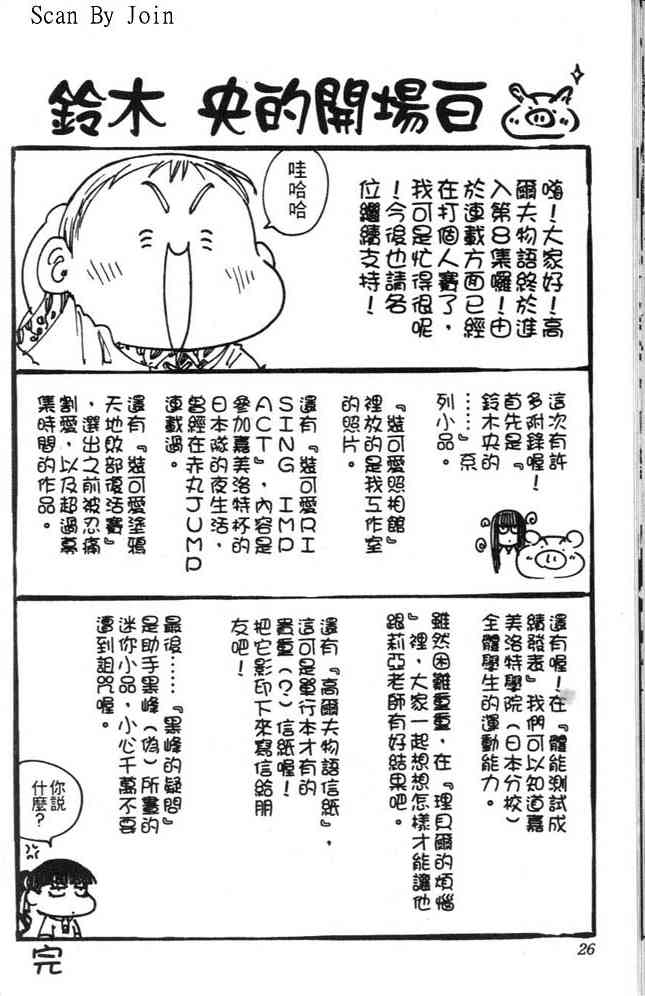 Scan By Join
鈴木 央的開場白
嗨！大家好！高
爾夫物語終於進
入第8集囉！由
於連載方面已經
在打個人賽了，
我可是忙得很呢
！今後也請各
位繼續支持！
哇哈哈
這次有許
多附錄喔！
首先是『
鈴木央的
……』系
列小品。
『裝可愛照相館』
裡放的是我工作室
的照片。
還有『裝可愛RI
SING IMP
ACT』，內容是
參加嘉美洛特杯的
日本隊的夜生活，
曾經在赤丸JUMP
連載過。
還有『裝可愛塗鴉
天地敗部復活賽』
，選出之前被忍痛
割愛，以及超過募
集時間的作品。
還有喔！在『體能測試成
績發表』我們可以知道嘉
美洛特學院（日本分校）
全體學生的運動能力。
雖然困難重重，在『理貝爾的煩惱
』裡，大家一起想想怎樣才能讓他
跟莉亞老師有好結果吧。
還有『高爾夫物語信紙』，
這可是單行本才有的
貴重（？）信紙喔！
把它影印下來寫信給朋
友吧！
最後……『黑峰的疑問』
是助手黑峰（偽）所畫的
迷你小品，小心千萬不要
遭到詛咒喔。
你說
什麼？
完
26